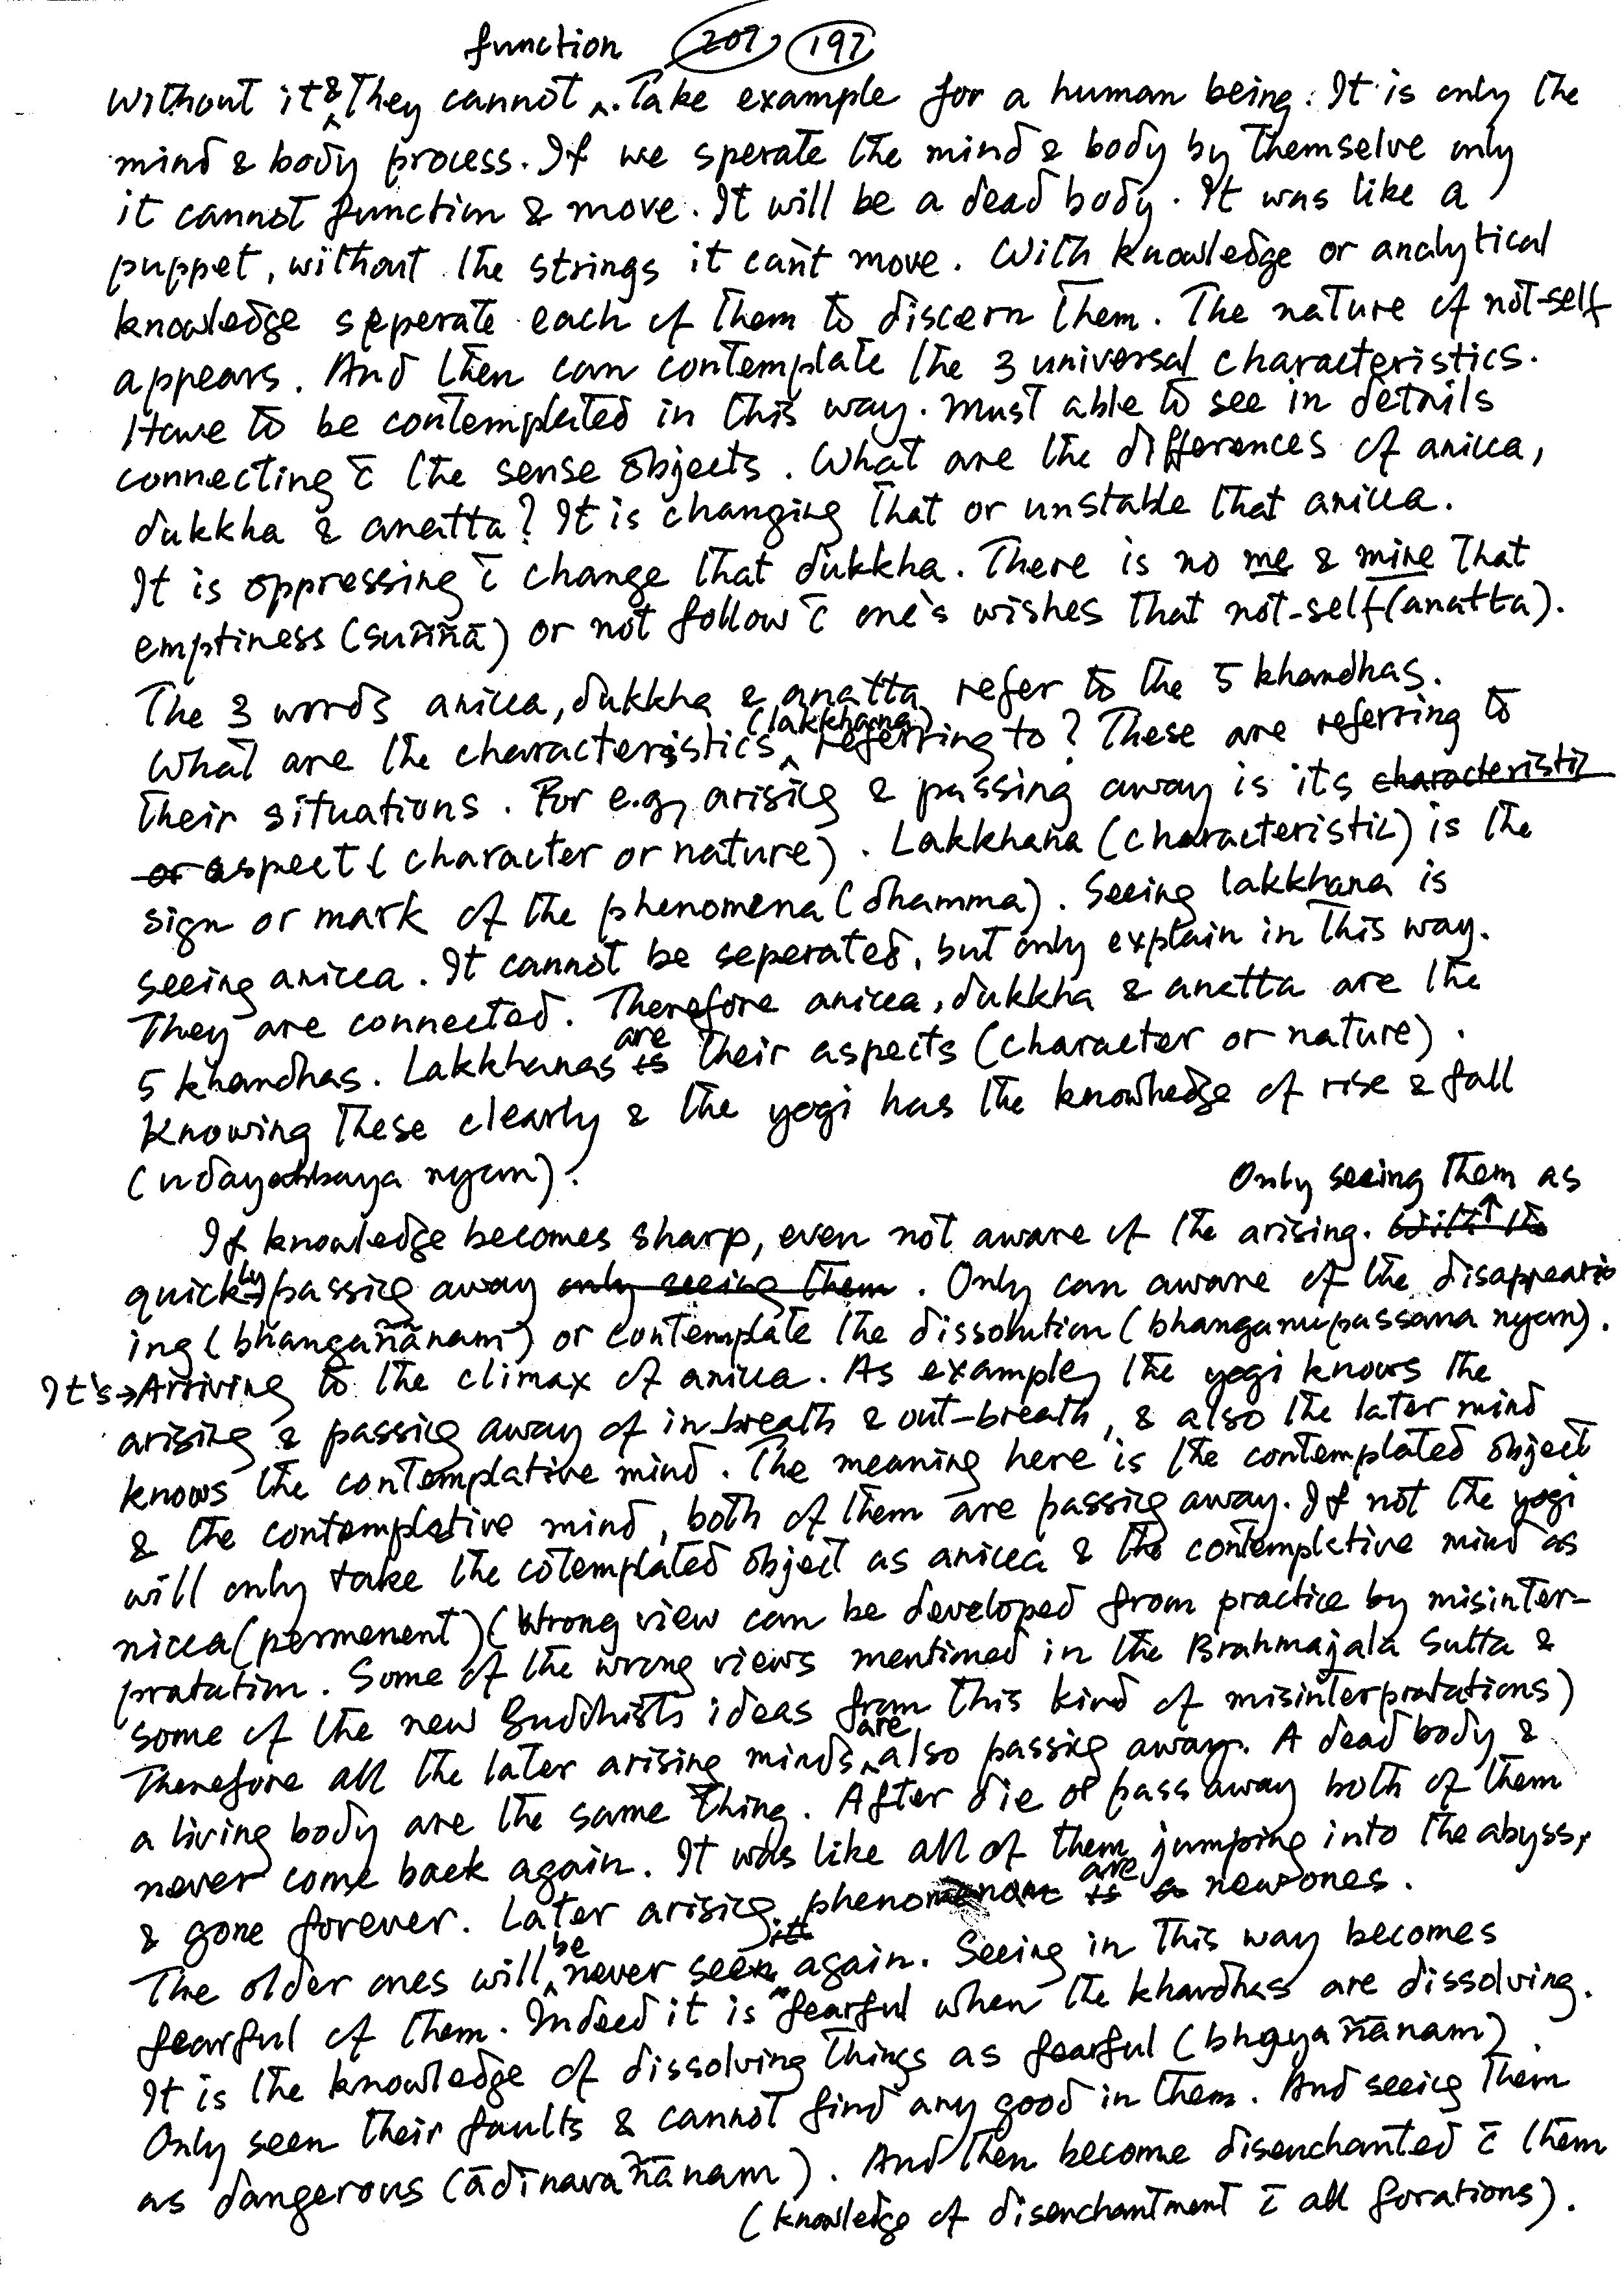 function 207 197
without it & they cannot ^. Take example for a human being. It is only the
mind & body process. If we sperate the mind & body by themselve only
it cannot function & move. It will be a dead body. It was like a
puppet, without the strings it can't move. With knowledge or analytical
knowledge seperate each of them to discern them. The nature of not-self
appears. And then can contemplate the 3 universal characteristics.
Have to be contemplated in this way. Must able to see in details
connecting c̄ the sense objects. What are the differences of anicca,
dukkha & anatta? It is changing that or unstable that anicca.
It is oppressing c̄ change that dukkha. There is no me & mine that
emptiness (suññā) or not follow c̄ one's wishes that not-self (anatta).
The 3 words anicca, dukkha & anatta refer to the 5 khandhas.
What are the characteristics ^ (lakkhana) referring to? These are referring to
their situations. For e.g, arising & passing away is its characteristic
or aspect (character or nature). Lakkhana (characteristic) is the
sign or mark of the phenomena (dhamma). Seeing lakkhana is
seeing anicca. It cannot be seperated, but only explain in this way.
They are connected. Therefore anicca, dukkha & anatta are the
5 khandhas. Lakkhanas is are their aspects (character or nature).
Knowing these clearly & the yogi has the knowledge of rise & fall
(udayabbaya nyan).
Only seeing them as
If knowledge becomes sharp, even not aware of the arising. With the
quickly passing away only seeing them. Only can aware of the disappear
ing (bhangañānam) or contemplate the dissolution (bhanganupassana nyan).
It's → Arriving to the climax of anicca. As example, the yogi knows the
arising & passing away of in-breath & out-breath, & also the later mind
knows the contemplative mind. The meaning here is the contemplated object
& the contemplative mind, both of them are passing away. If not the yogi
will only take the cotemplated object as anicca & the contempletive mind as
nicca (permenent) (Wrong view can be developed from practice by misinter-
pratation. Some of the wrong views mentioned in the Brahmajala Sutta &
some of the new Buddhists ideas from this kind of misinterpratations)
Therefore all the later arising minds ^ are also passing away. A dead body &
a living body are the same thing. After die or pass away both of them
never come back again. It was like all of them jumping into the abyss,
& gone forever. Later arising phenomena is a are new ones.
The older ones will ^ be never seen it again. Seeing in this way becomes
fearful of them. Indeed it is fearful when the khandhas are dissolving.
It is the knowledge of dissolving things as fearful (bhayañānam).
Only seen their faults & cannot find any good in them. And seeing them
as dangerous (ādīnavañānam). And then become disenchanted c̄ them
(knowledge of disenchantment c̄ all forations).